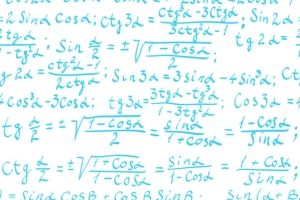 2 Sinα Cosα; Ctg3α = (Ctg³α - 3Ctgα)/(3Ctg²α - 1); Sin2α
2tgα/(1 - tg²α); Sin α/2 = ±√((1 - Cosα)/2); tg2α =
g2α = (ctg²α - 1)/(2ctgα); Sin3α = 3sinα - 4Sin³α; C
4cos³α - 3Cosα; tg3α = (3tgα - tg³α)/(1 - 3tg²α); Cos3α = 4
tg α/2 = ±√((1 - Cosα)/(1 + Cosα)) = sinα/(1 + cosα) = (1 - Cosα)/Sinα;
Ctg α/2 = ±√((1 + Cosα)/(1 - Cosα)) = Sinα/(1 - Cosα) = (1 + Cosα)/Sinα;
= Sinα CosB + Cosα SinB; Sin(α + B)